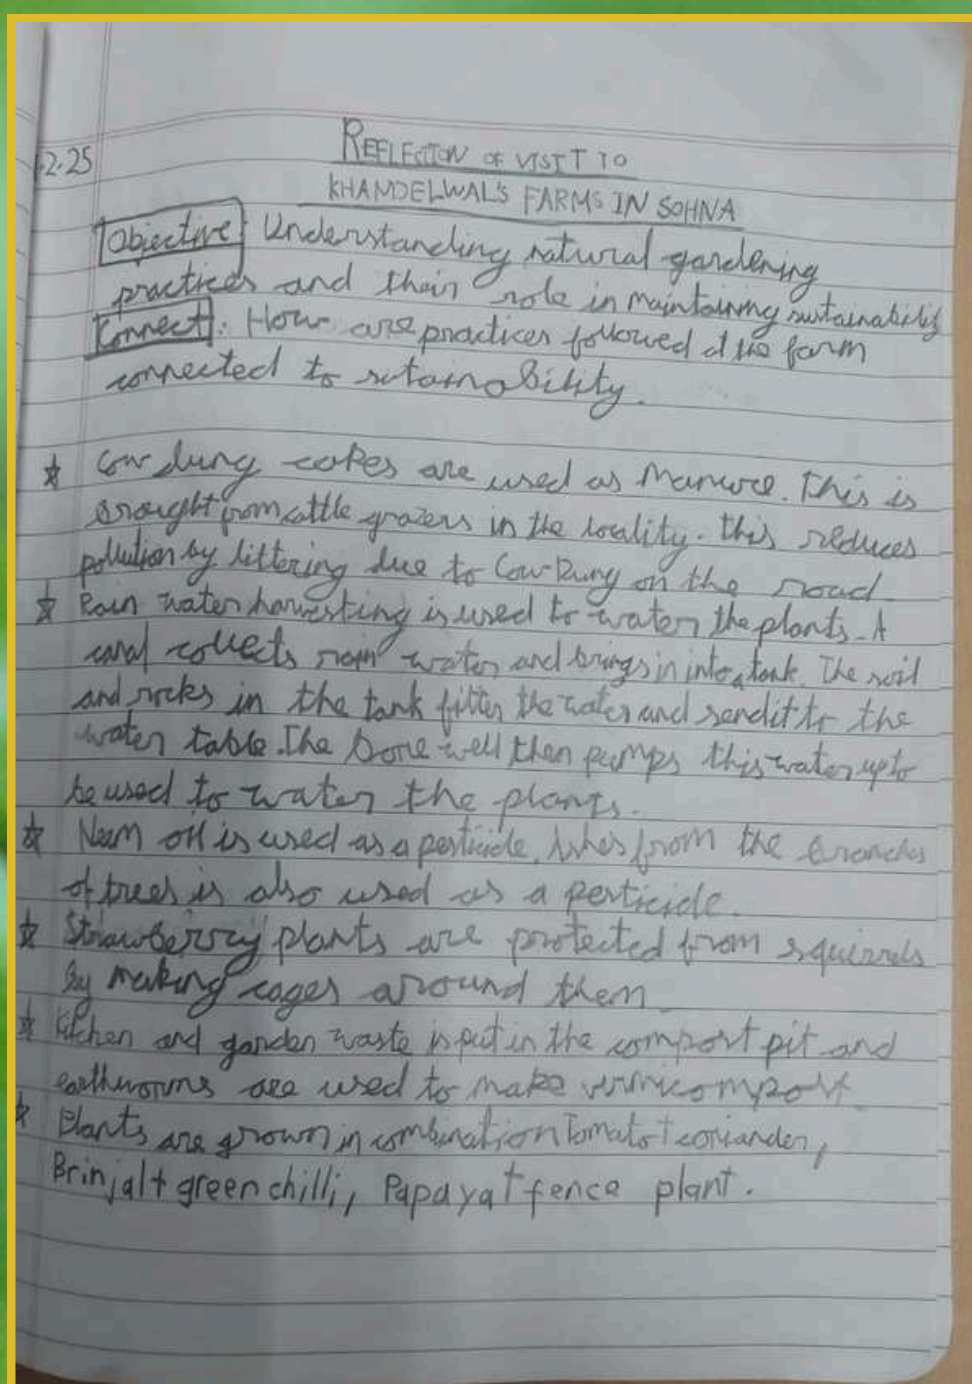 -2-25
REFLECTION OF VISIT TO
KHANDELWAL'S FARMS IN SOHNA
Objective: Understanding natural gardening
practices and their role in maintaining sustainability
Connect: How are practices followed at the farm
connected to sutainability.
☆ Cow dung cakes are used as Manure. This is
brought from cattle grazers in the locality. this reduces
pollution by littering due to Cow Dung on the road.
☆ Rain water harvesting is used to water the plants. A
canal collects rain water and brings in into a tank. The soil
and rocks in the tank filter the water and send it to the
water table. The bore well then pumps this water up to
be used to water the plants.
☆ Neem oil is used as a pesticide. Ashes from the branches
of trees is also used as a pesticide.
☆ Strawberry plants are protected from squirrels
by making cages around them
☆ Kitchen and garden waste is put in the compost pit and
earthworms are used to make vermicompost
☆ Plants are grown in combination Tomato + coriander,
Brinjal + green chilli, Papaya + fence plant.